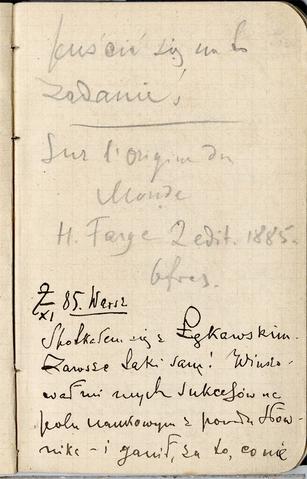 puścić się na to
zadanie!
Sur l'origine du
Monde
H. Faye 2 edit. 1885.
6 frcs.
2/XI 85. Warsz
Spotkałem się z Łętkowskim.
Zawsze taki sam! Winszo-
wał mi mych sukcesów na
polu naukowym z powodu Słow-
nika – i ganił, za to, co nie